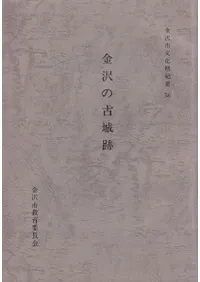 金沢市文化財紀要 58
金沢の古城跡
金沢市教育委員会